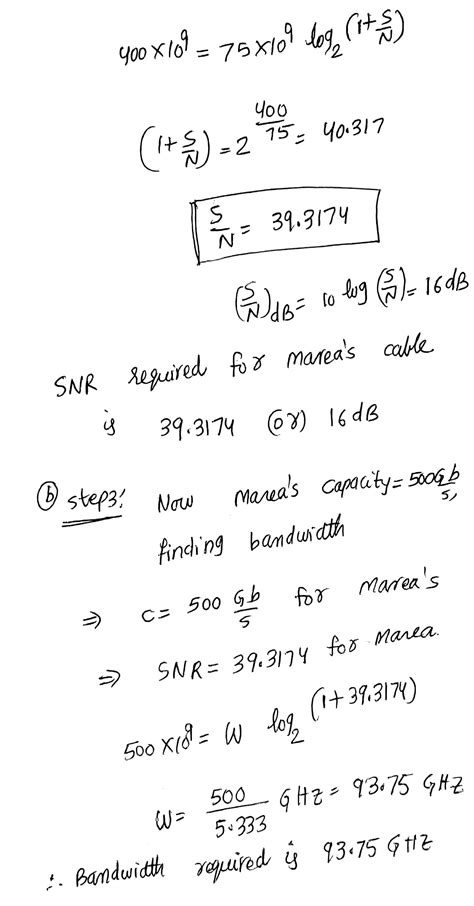 400×10⁹ = 75×10⁹ log₂ (1+S/N)
(1+S/N) = 2^(400/75) = 40.317
S/N = 39.3174
(S/N)dB = 10 log (S/N) = 16dB
SNR required for marea's cable
is 39.3174 (or) 16dB
ⓑ step3: Now Marea's capacity = 500Gb/s,
finding bandwidth
⇒ C = 500 Gb/s for Marea's
⇒ SNR = 39.3174 for Marea.
500×10⁹ = W log₂ (1+39.3174)
W = 500/5.333 GHz = 93.75 GHz
∴ Bandwidth required is 93.75 GHz